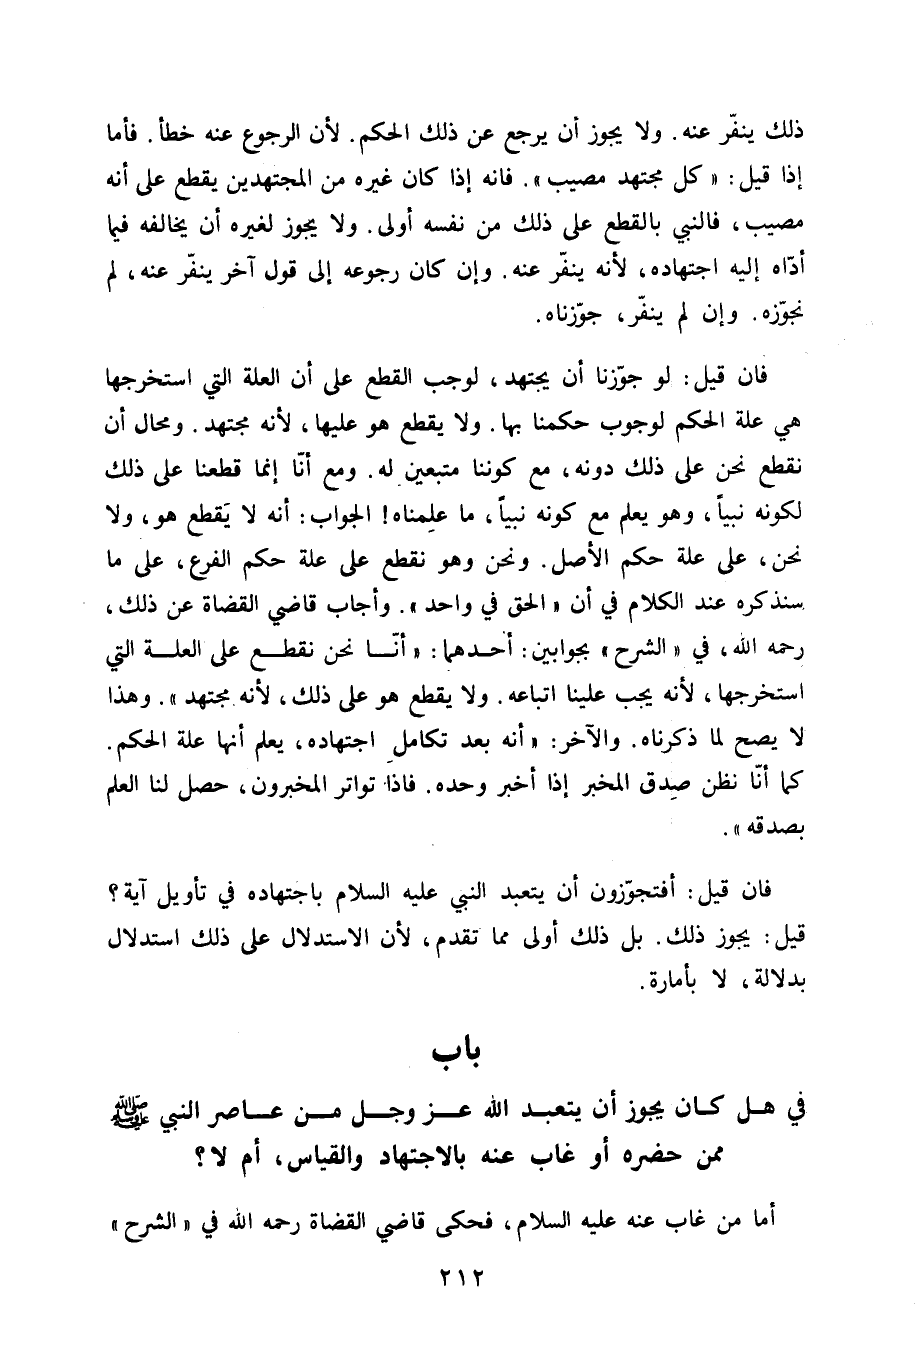 ذلك ينفّر عنه. ولا يجوز أن يرجع عن ذلك الحكم. لأن الرجوع عنه خطأ. فأما
إذا قيل: « كل مجتهد مصيب ». فانه إذا كان غيره من المجتهدين يقطع على أنه
مصيب، فالنبي بالقطع على ذلك من نفسه أولى. ولا يجوز لغيره أن يخالفه فيما
أدّاه إليه اجتهاده، لأنه ينفّر عنه. وإن كان رجوعه إلى قول آخر ينفّر عنه، لم
نجوّزه. وإن لم ينفّر، جوّزناه.
فان قيل: لو جوّزنا أن يجتهد، لوجب القطع على أن العلة التي استخرجها
هي علة الحكم لوجوب حكمنا بها. ولا يقطع هو عليها، لأنه مجتهد. ومحال أن
نقطع نحن على ذلك دونه، مع كوننا متبعين له. ومع أنّا إنما قطعنا على ذلك
لكونه نبياً، وهو يعلم مع كونه نبياً، ما علِمناه! الجواب: أنه لا يَقطع هو، ولا
نحن، على علة حكم الأصل. ونحن وهو نقطع على علة حكم الفرع، على ما
سنذكره عند الكلام في أن « الحق في واحد ». وأجاب قاضي القضاة عن ذلك،
رحمه الله، في « الشرح » بجوابين: أحدهما: « أنّا نحن نقطع على العلة التي
استخرجها، لأنه يجب علينا اتباعه. ولا يقطع هو على ذلك، لأنه مجتهد ». وهذا
لا يصح لما ذكرناه. والآخر: « أنه بعد تكامل اجتهاده، يعلم أنها علة الحكم.
كما أنّا نظن صِدق المخبر إذا أخبر وحده. فاذا تواتر المخبرون، حصل لنا العلم
بصدقه ».
فان قيل: أفتجوّزون أن يتعبد النبي عليه السلام باجتهاده في تأويل آية؟
قيل: يجوز ذلك. بل ذلك أولى مما تقدم، لأن الاستدلال على ذلك استدلال
بدلالة، لا بأمارة.
باب
في هل كان يجوز أن يتعبد الله عز وجل من عاصر النبي ﷺ
ممن حضره أو غاب عنه بالاجتهاد والقياس، أم لا؟
أما من غاب عنه عليه السلام، فحكى قاضي القضاة رحمه الله في « الشرح »
٢١٢